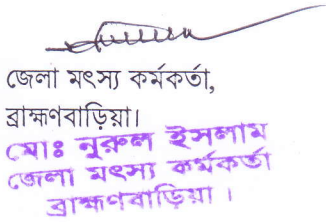 জেলা মৎস্য কর্মকর্তা,
ব্রাহ্মণবাড়িয়া।
মোঃ নুরুল ইসলাম
জেলা মৎস্য কর্মকর্তা
ব্রাহ্মণবাড়িয়া ।